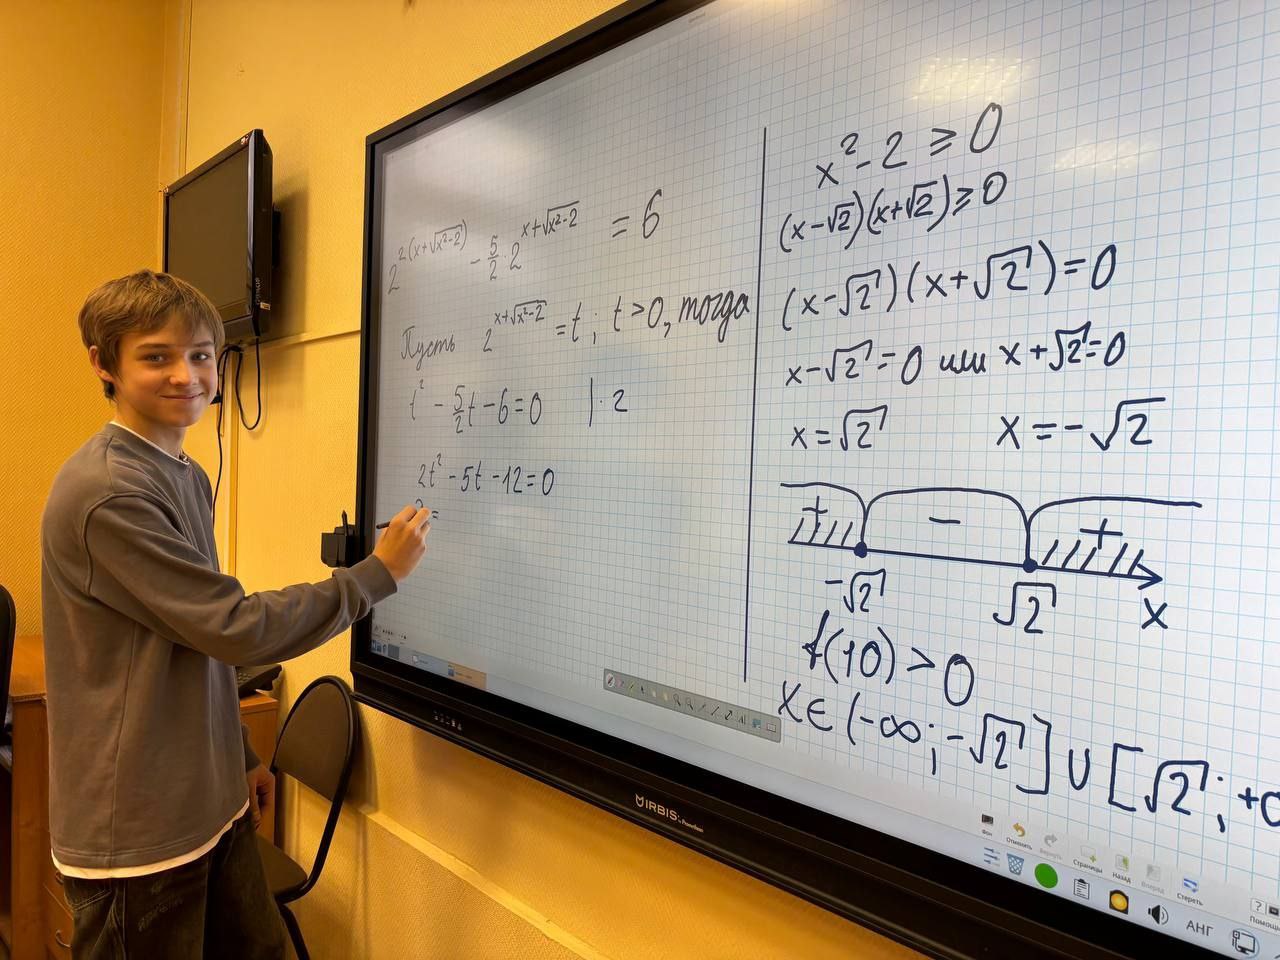 2^{2(x+√(x²-2))} - 5/2 · 2^{x+√(x²-2)} = 6
Пусть 2^{x+√(x²-2)} = t; t > 0, тогда
t² - 5/2 t - 6 = 0 | · 2
2t² - 5t - 12 = 0
=
x² - 2 ≥ 0
(x-√2)(x+√2) ≥ 0
(x-√2)(x+√2) = 0
x-√2 = 0 или x+√2 = 0
x = √2 x = -√2
+ - +
-√2 √2 x
f(10) > 0
x ∈ (-∞; -√2] ∪ [√2; +
IRBIS
Фон Отменить Вернуть Страницы Назад Вперёд Стереть Помощь
АНГ